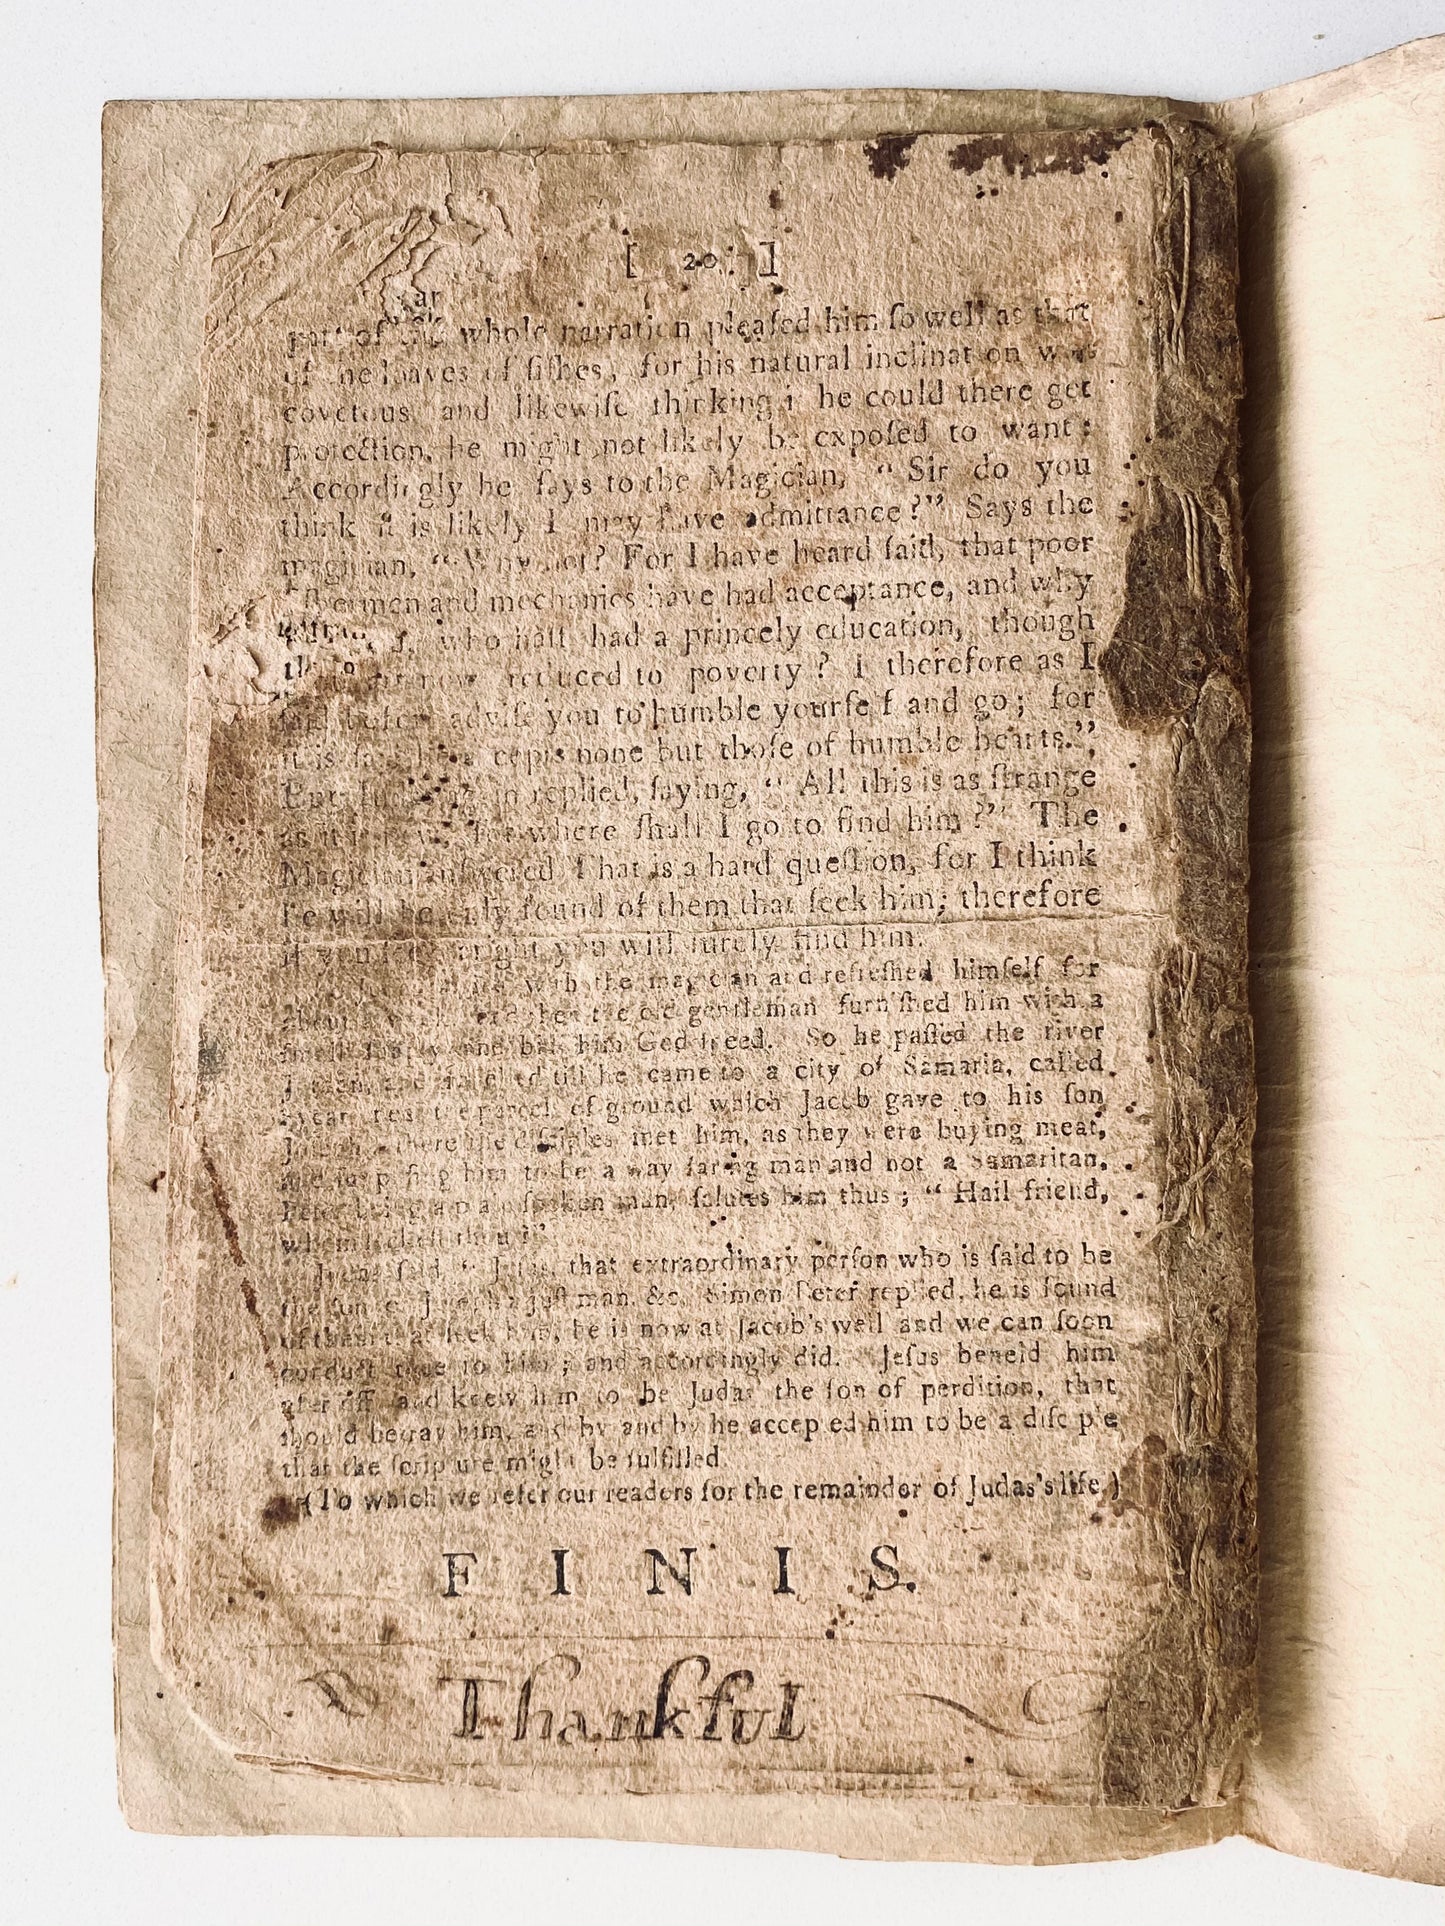 [ 20 ]
part of the whole narration pleaſed him ſo well as that
of the loaves of fiſhes, for his natural inclination was
covetous and likewiſe thinking if he could there get
protection, he might not likely be expoſed to want:
Accordingly he ſays to the Magician, “ Sir do you
think it is likely I may have admittance?” Says the
magician, “Why not? For I have heard ſaid, that poor
fiſhermen and mechanics have had acceptance, and why
who haſt had a princely education, though
now reduced to poverty? I therefore as I
ſaid before adviſe you to humble yourſelf and go; for
it is ſaid he accepts none but thoſe of humble hearts.”
But Judas again replied, ſaying, “ All this is as ſtrange
as it is for where ſhall I go to find him?” The
Magician anſwered That is a hard queſtion, for I think
he will be only found of them that ſeek him; therefore
if you ſeek aright you will ſurely find him.
with the magician and refreſhed himſelf for
the old gentleman furniſhed him with a
ſmall ſupply and bid him God ſpeed. So he paſſed the river
Jordan, and travelled till he came to a city of Samaria, called
Sycar, near the parcel of ground which Jacob gave to his ſon
Joſeph, where the diſciples met him, as they were buying meat,
and ſuppoſing him to be a way faring man and not a Samaritan,
Peter being a plain ſpoken man, ſalutes him thus; “ Hail friend,
whom ſeekeſt thou?”
Judas ſaid, “ Jeſus, that extraordinary perſon who is ſaid to be
the ſon of Joſeph a juſt man, &c. Simon Peter replied, he is found
of them that ſeek him, he is now at Jacob's well and we can ſoon
conduct thee to him; and accordingly did. Jeſus beheld him
afar off and knew him to be Judas the ſon of perdition, that
ſhould betray him, and by and by he accepted him to be a diſciple
that the ſcripture might be fulfilled.
(To which we refer our readers for the remainder of Judas's life.)
F I N I S.
Thankful